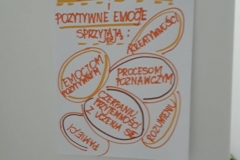 I
POZYTYWNE EMOCJE
SPRZYJAJĄ:
KREATYWNOŚCI
EMOCJOM
POZYTYWNYM
PROCESOM
POZNAWCZYM
CZERPANIU
PRZYJEMNOŚCI
Z UCZENIA SIĘ
ROZUMIENIU
PAMIĘCI